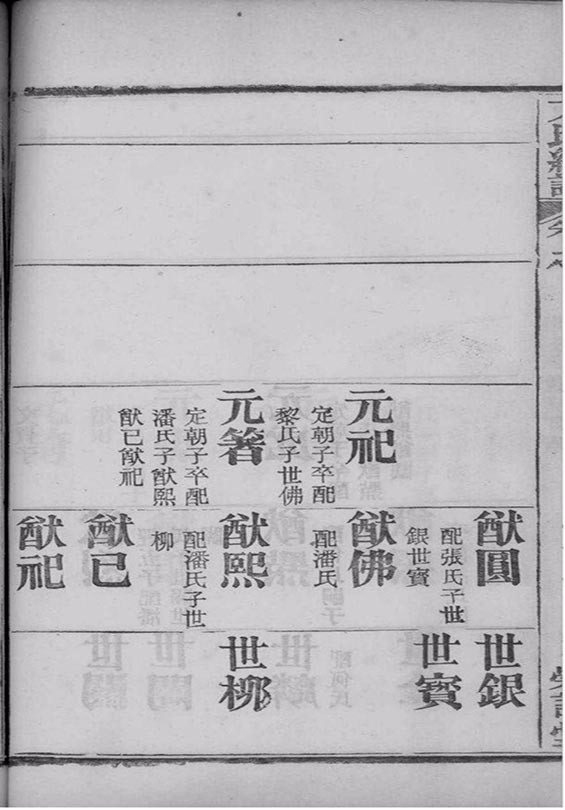 元祀
定朝子卒配
黎氏子世佛
元箸
定朝子卒配
潘氏子猷熙
猷已猷祀
猷圓
配張氏子世
銀世寳
猷佛
配潘氏
猷熙
配潘氏子世
柳
猷已
猷祀
世銀
世寳
世柳